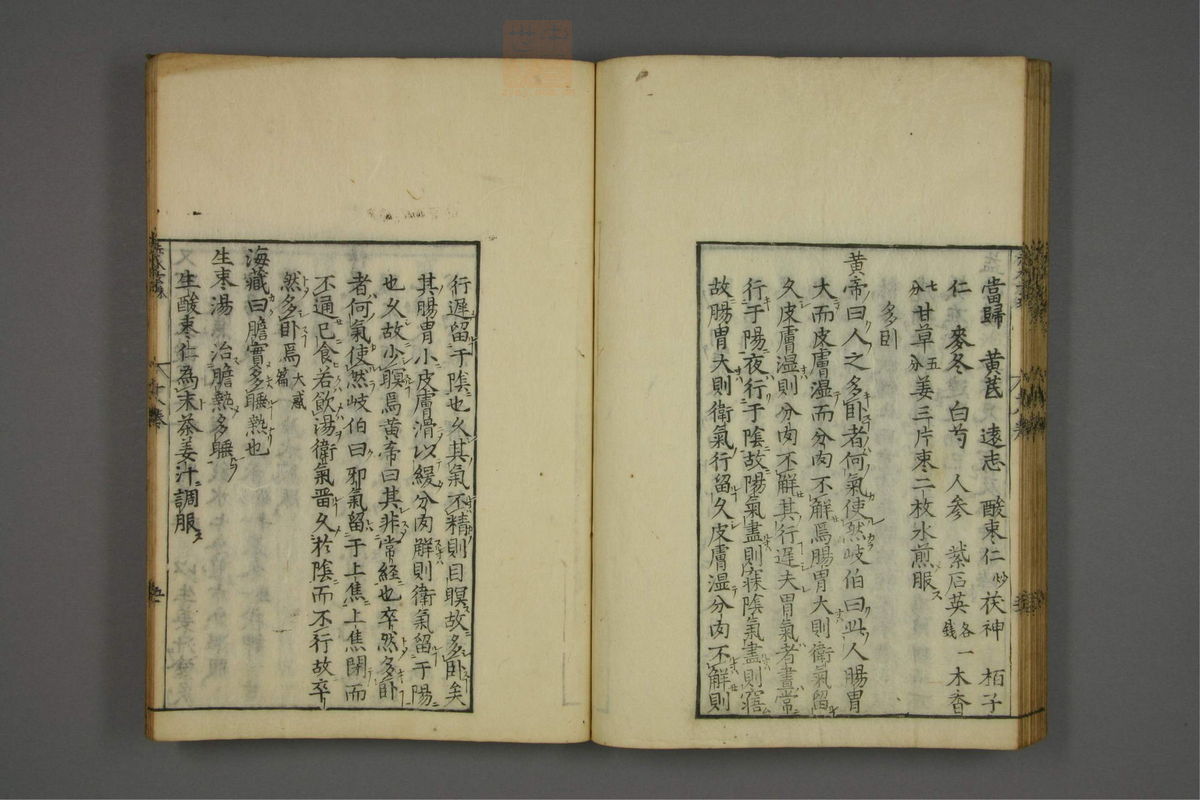 當歸 黃芪 遠志 酸枣仁炒 茯神 栢子
仁 麥冬 白芍 人参 紫石英各一錢 木香
七分 甘草五分 姜三片枣二枚水煎服
多卧
黄帝曰人之多卧者何氣使然岐伯曰此人腸胃
大而皮膚濕而分肉不解焉腸胃大則衛氣留
久皮膚濕則分肉不解其行遅夫胃氣者晝常
行于陽夜行于陰故陽氣盡則寐陰氣盡則寤
故腸胃大則衛氣行留久皮膚濕分肉不解則
行遅留于陰也久其氣不精則目瞑故多卧矣
其腸胃小皮膚滑以緩分肉解則衛氣留于陽
也久故少瞑焉黄帝曰其非常経也卒然多卧
者何氣使然岐伯曰邪氣留于上焦上焦閉而
不通已食若飲湯衛氣畱久於陰而不行故卒
然多卧焉大惑篇
海藏曰膽實多睡熱也
生枣湯 治膽熱多睡
生酸枣仁為末茶姜汁調服